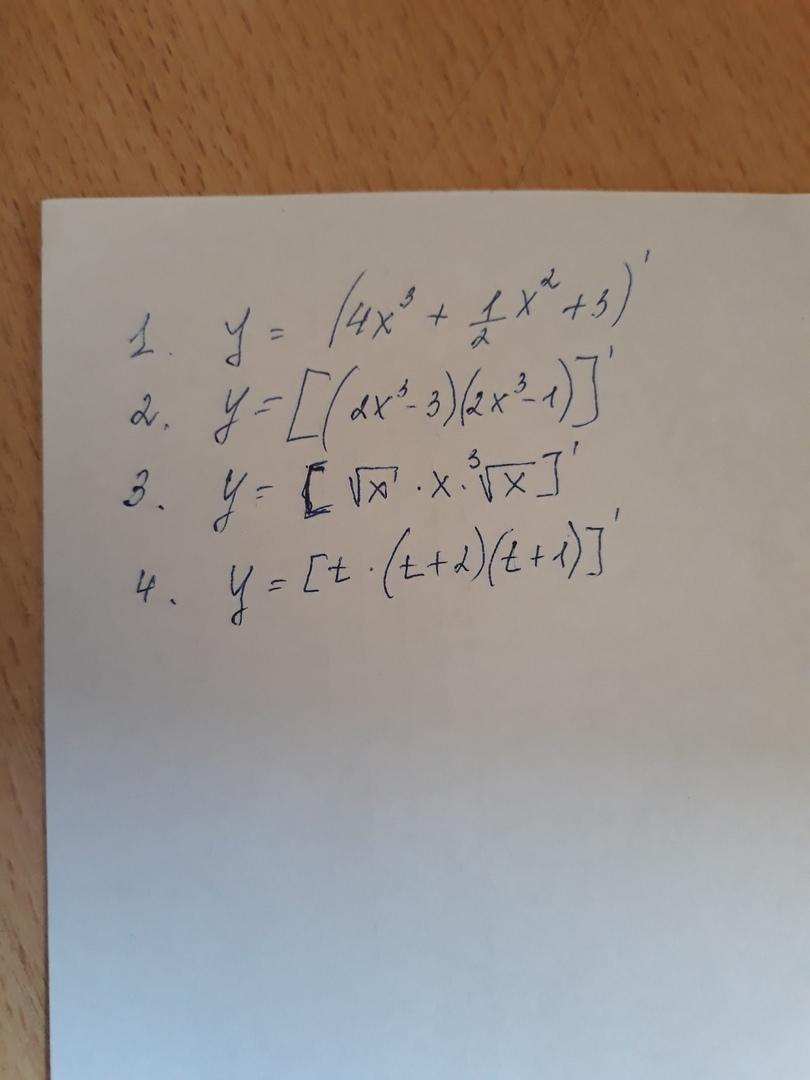 1. y = (4x³ + 1/2 x² + 3)'
2. y = [(2x³ - 3)(2x³ - 1)]'
3. y = [√x · x · ³√x]'
4. y = [t · (t + 2)(t + 1)]'